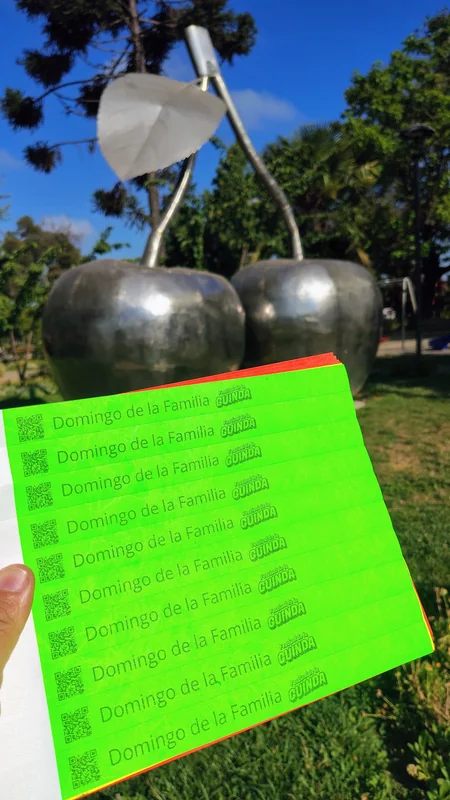 Domingo de la Familia GUINDA
Domingo de la Familia GUINDA
Domingo de la Familia GUINDA
Domingo de la Familia GUINDA
Domingo de la Familia GUINDA
Domingo de la Familia GUINDA
Domingo de la Familia GUINDA
Domingo de la Familia GUINDA
Domingo de la Familia GUINDA
Domingo de la Familia GUINDA